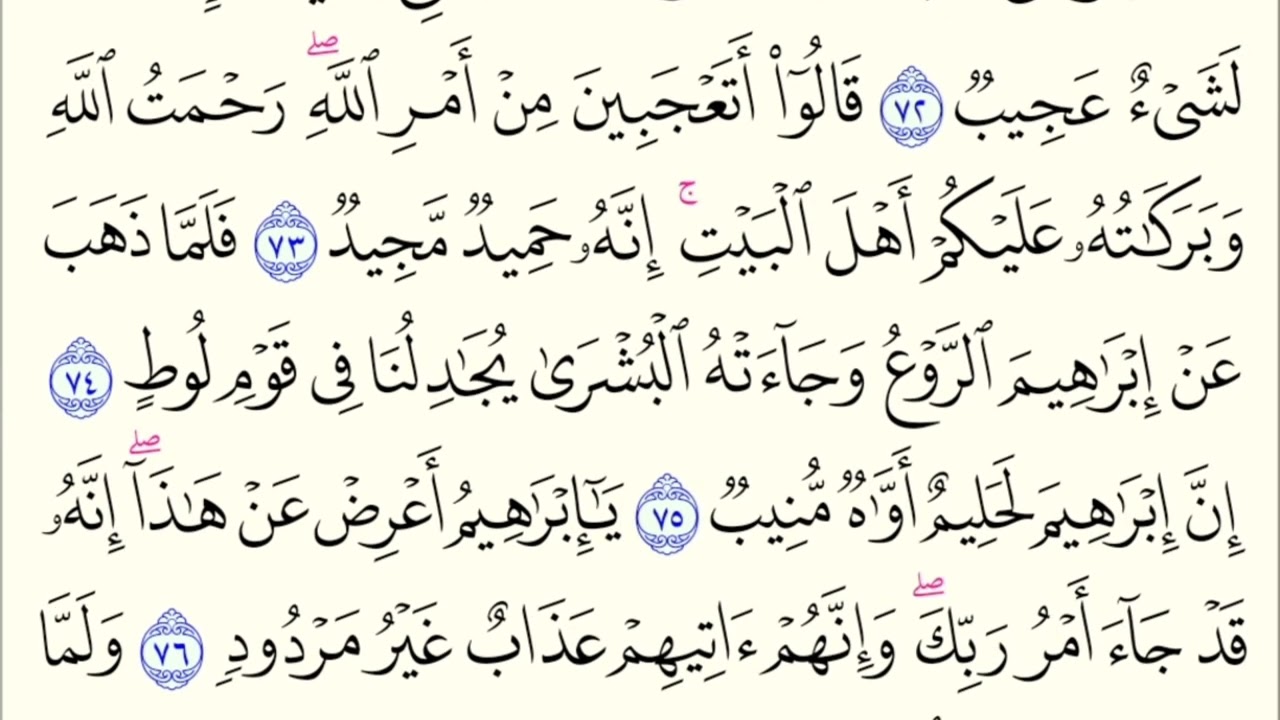 لَشَىْءٌ عَجِيبٌ ٧٢ قَالُوٓا۟ أَتَعْجَبِينَ مِنْ أَمْرِ ٱللَّهِ ۖ رَحْمَتُ ٱللَّهِ
وَبَرَكَـٰتُهُۥ عَلَيْكُمْ أَهْلَ ٱلْبَيْتِ ۚ إِنَّهُۥ حَمِيدٌ مَّجِيدٌ ٧٣ فَلَمَّا ذَهَبَ
عَنْ إِبْرَٰهِيمَ ٱلرَّوْعُ وَجَآءَتْهُ ٱلْبُشْرَىٰ يُجَـٰدِلُنَا فِى قَوْمِ لُوطٍ ٧٤
إِنَّ إِبْرَٰهِيمَ لَحَلِيمٌ أَوَّٰهٌ مُّنِيبٌ ٧٥ يَـٰٓإِبْرَٰهِيمُ أَعْرِضْ عَنْ هَـٰذَآ ۖ إِنَّهُۥ
قَدْ جَآءَ أَمْرُ رَبِّكَ ۖ وَإِنَّهُمْ ءَاتِيهِمْ عَذَابٌ غَيْرُ مَرْدُودٍ ٧٦ وَلَمَّا